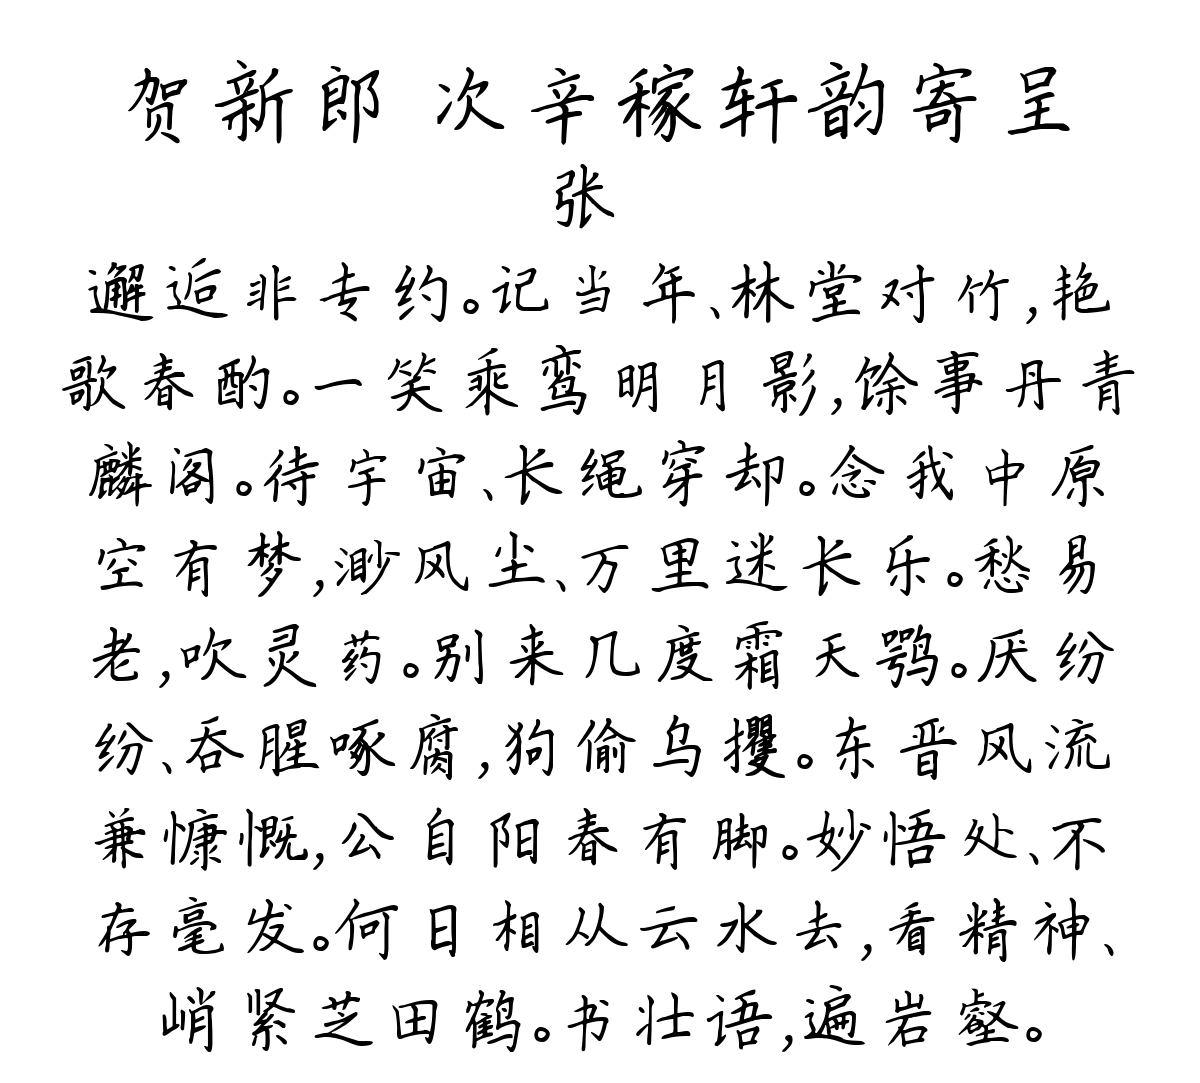 贺新郎 次辛稼轩韵寄呈
张
邂逅非专约。记当年、林堂对竹,艳
歌春酌。一笑乘鸾明月影,馀事丹青
麟阁。待宇宙、长绳穿却。念我中原
空有梦,渺风尘、万里迷长乐。愁易
老,吹灵药。别来几度霜天鹗。厌纷
纷、吞腥啄腐,狗偷乌攫。东晋风流
兼慷慨,公自阳春有脚。妙悟处、不
存毫发。何日相从云水去,看精神、
峭紧芝田鹤。书壮语,遍岩壑。